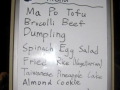 Ma Po Tofu
Broccoli Beef
Dumpling
Spinach Egg Salad
Fried Rice (Vegetarian)
Taiwanese Pineapple Cake
Almond Cookie